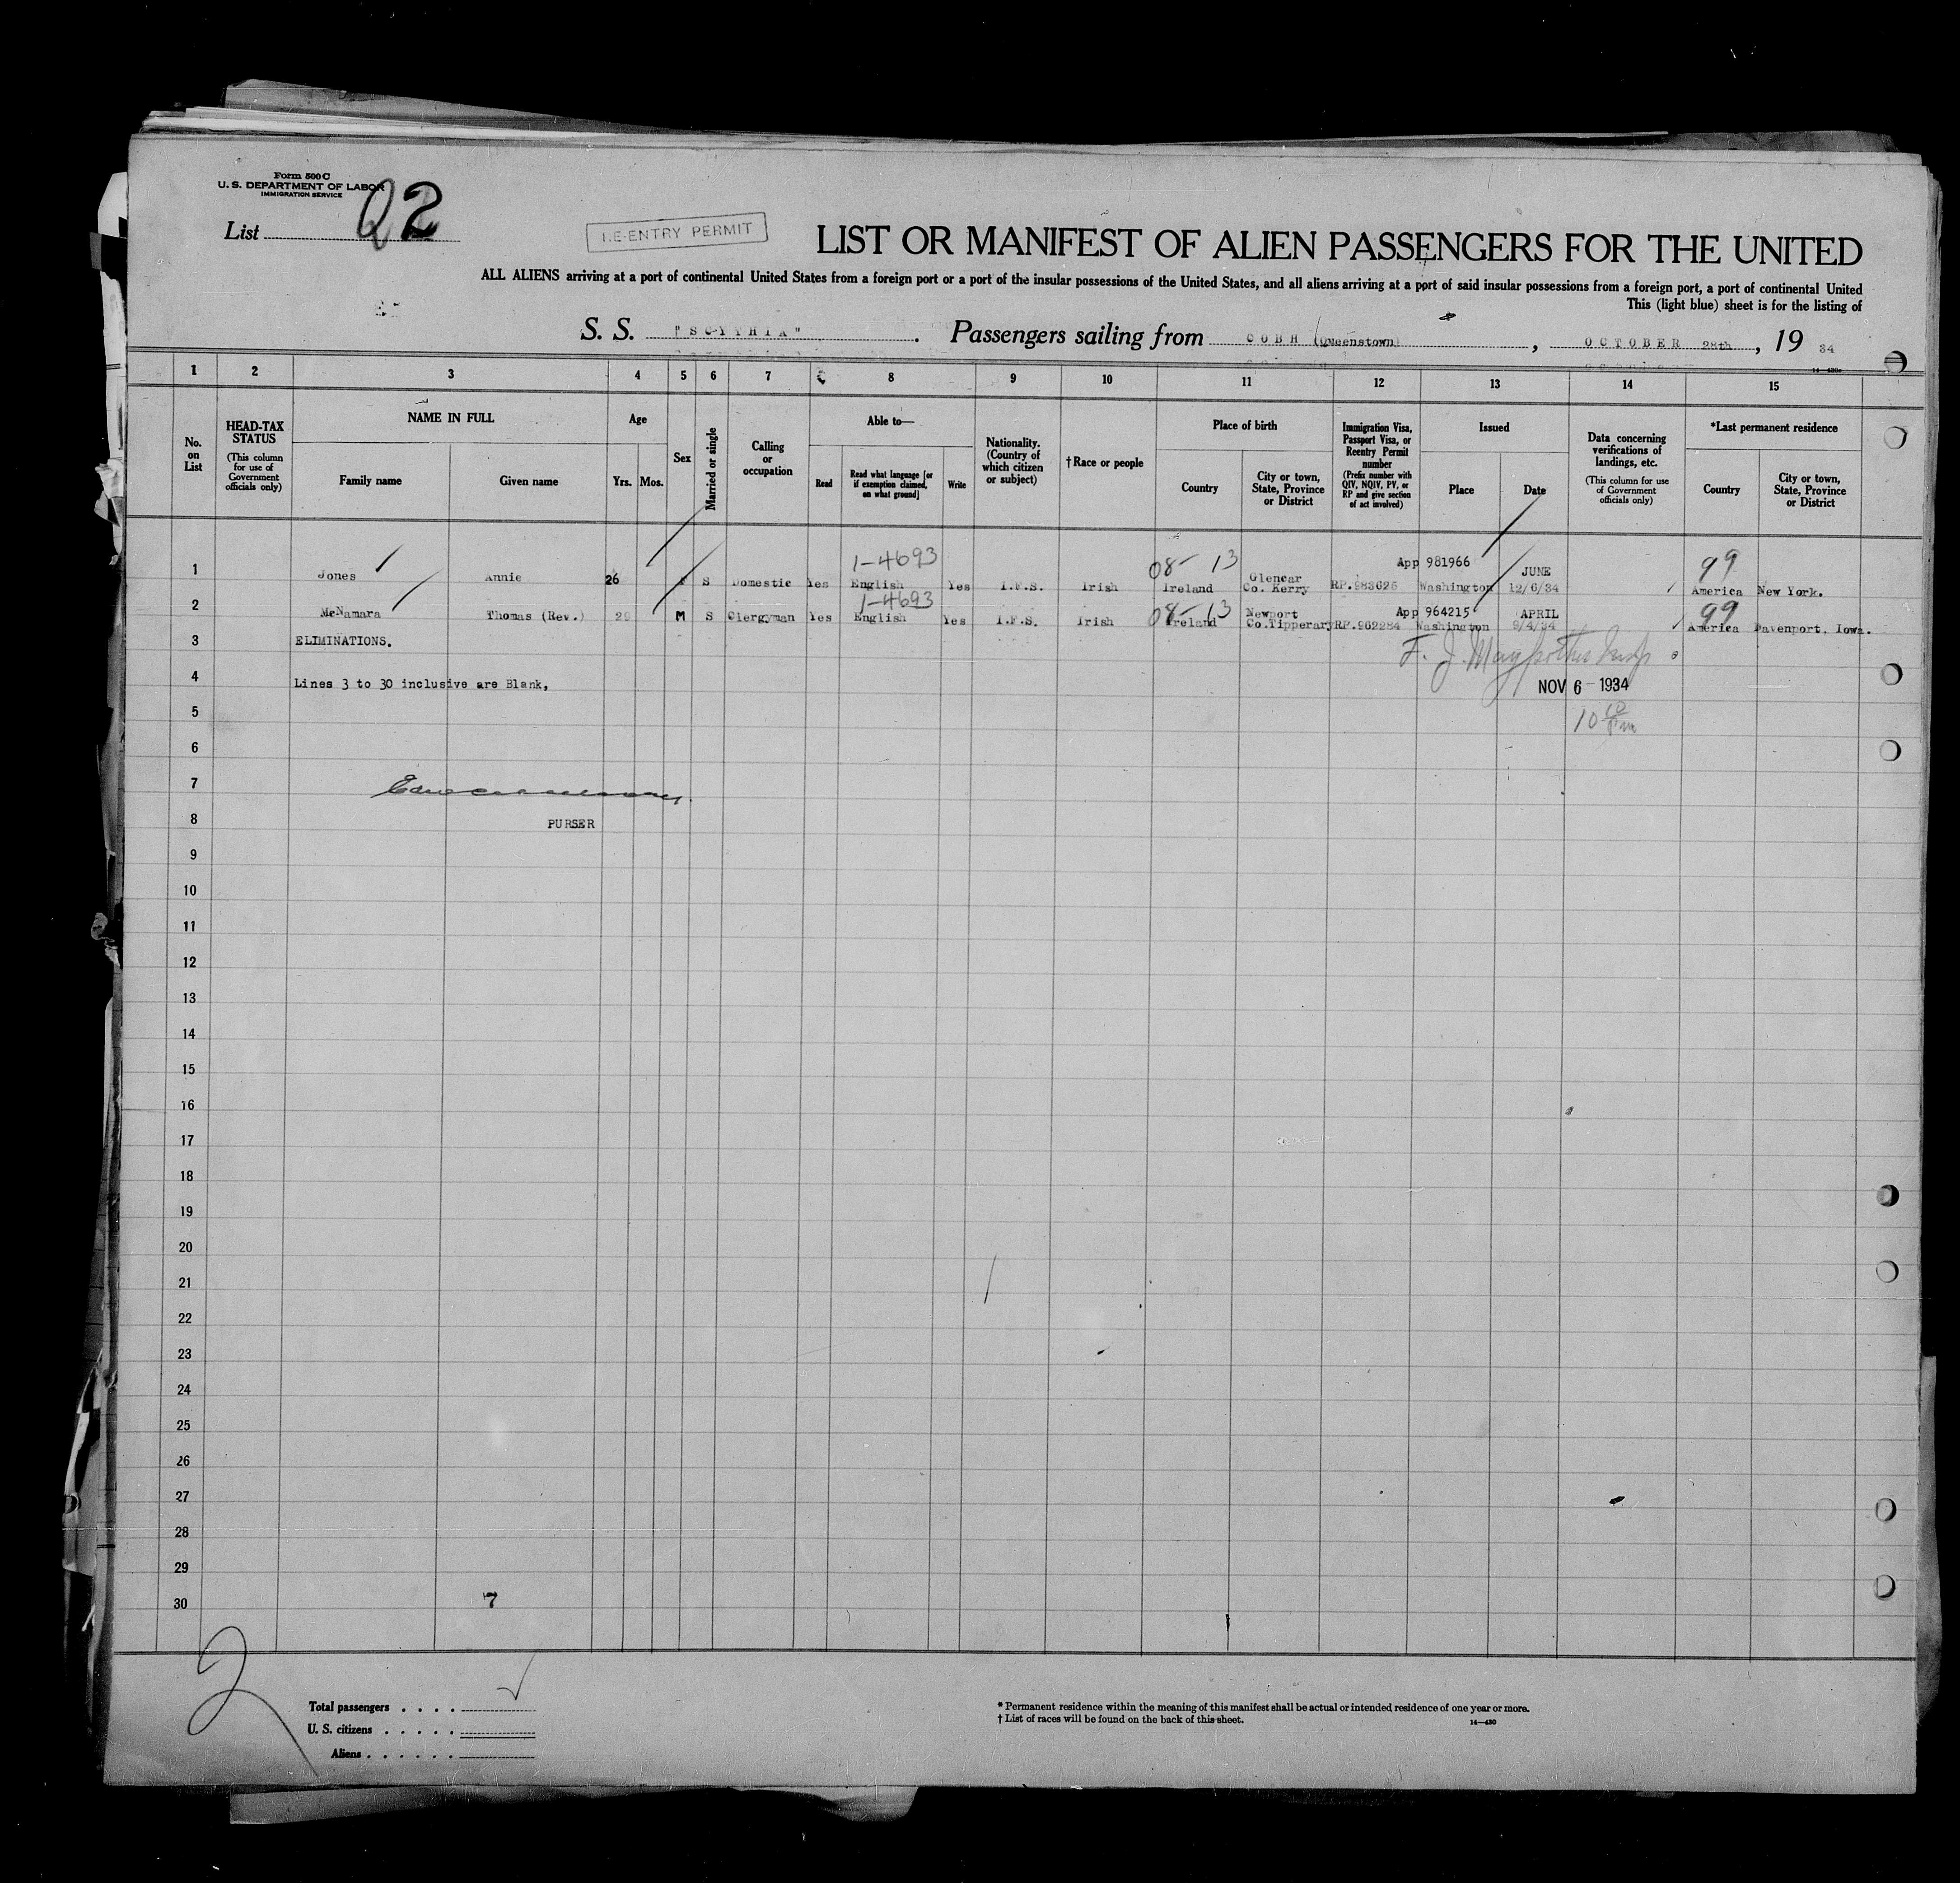 Form 500 C
U. S. DEPARTMENT OF LABOR
IMMIGRATION SERVICE
List 2
RE-ENTRY PERMIT
LIST OR MANIFEST OF ALIEN PASSENGERS FOR THE UNITED
ALL ALIENS arriving at a port of continental United States from a foreign port or a port of the insular possessions of the United States, and all aliens arriving at a port of said insular possessions from a foreign port, a port of continental United
This (light blue) sheet is for the listing of
S. S. "SCYTHIA". Passengers sailing from COBH (Queenstown), OCTOBER 28th, 19 34
14—430a
1 2 3 4 5 6 7 8 9 10 11 12 13 14 15
No. on List
HEAD-TAX STATUS
(This column for use of Government officials only)
NAME IN FULL
Family name Given name
Age
Yrs. Mos.
Sex
Married or single
Calling or occupation
Able to—
Read
Read what language [or if exemption claimed, on what ground]
Write
Nationality. (Country of which citizen or subject)
† Race or people
Place of birth
Country
City or town, State, Province or District
Immigration Visa, Passport Visa, or Reentry Permit number
(Prefix number with QIV, NQIV, PV, or RP and give section of act involved)
Issued
Place Date
Data concerning verifications of landings, etc.
(This column for use of Government officials only)
*Last permanent residence
Country
City or town, State, Province or District
1-4693 08- 13 App 981966 99
1 Jones Annie 26 F S Domestic Yes English Yes I.F.S. Irish Ireland Glencar Co. Kerry RP.983626 Washington JUNE 12/6/34 America New York.
1-4693 08- 13 App 964215 99
2 McNamara Thomas (Rev.) 29 M S Clergyman Yes English Yes I.F.S. Irish Ireland Newport Co.Tipperary RP.962284 Washington APRIL 9/4/34 America Davenport, Iowa.
3 ELIMINATIONS.
F. J.
4 Lines 3 to 30 inclusive are Blank,
NOV 6 - 1934
5
10
6
7
8 PURSER
9
10
11
12
13
14
15
16
17
18
19
20
21
22
23
24
25
26
27
28
29
30 7
2
Total passengers . . . .
U. S. citizens . . . . .
Aliens . . . . . .
* Permanent residence within the meaning of this manifest shall be actual or intended residence of one year or more.
† List of races will be found on the back of this sheet.
14—430